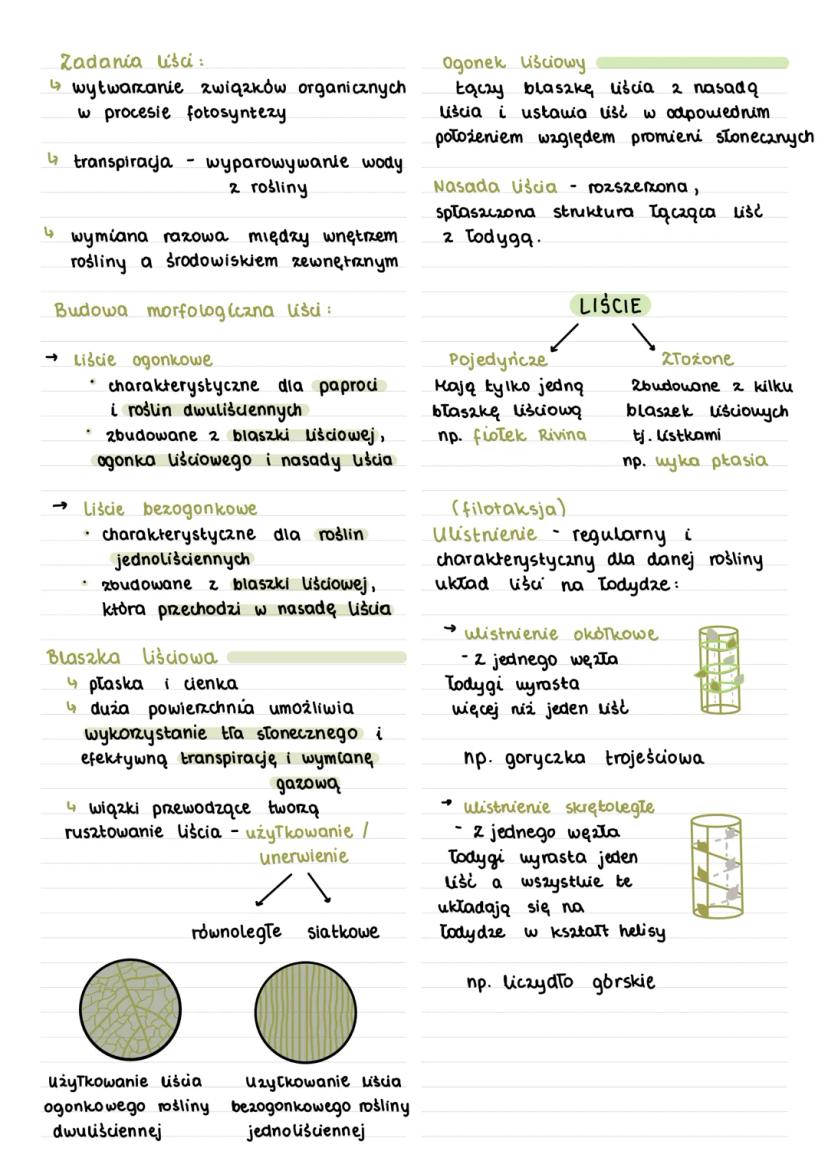 Zadania liści:
↳ wytwarzanie związków organicznych
w procesie fotosyntezy
↳ transpiracja - wyparowywanie wody
z rośliny
↳ wymiana razowa między wnętrzem
rośliny a środowiskiem zewnętrznym
Budowa morfologiczna liści:
→ Liście ogonkowe
• charakterystyczne dla paproci
i roślin dwuliściennych
• zbudowane z blaszki liściowej,
ogonka liściowego i nasady liścia
→ Liście bezogonkowe
• charakterystyczne dla roślin
jednoliściennych
• zbudowane z blaszki liściowej,
która przechodzi w nasadę liścia
Blaszka liściowa
↳ płaska i cienka
↳ duża powierzchnia umożliwia
wykorzystanie tła słonecznego i
efektywną transpirację i wymianę
gazową
↳ wiązki przewodzące tworzą
rusztowanie liścia - użyłkowanie /
unerwienie
równoległe siatkowe
użyłkowanie liścia
ogonkowego rośliny
dwuliściennej
użyłkowanie liścia
bezogonkowego rośliny
jednoliściennej
Ogonek liściowy
łączy blaszkę liścia z nasadą
liścia i ustawia liść w odpowiednim
położeniem względem promieni słonecznych
Nasada liścia - rozszerzona,
spłaszczona struktura łącząca liść
z łodygą.
LIŚCIE
Pojedyńcze
Mają tylko jedną
błaszkę liściową
np. fiołek Rivina
Złożone
Zbudowane z kilku
blaszek liściowych
tj. listkami
np. wyka ptasia
(filotaksja)
Ulistnienie - regularny i
charakterystyczny dla danej rośliny
układ liści na łodydze:
→ ulistnienie okółkowe
- z jednego węzła
łodygi wyrasta
więcej niż jeden liść
np. goryczka trojeściowa
→ ulistnienie skrętoległe
- z jednego węzła
łodygi wyrasta jeden
liść a wszystkie te
układają się na
łodydze w kształt helisy
np. liczydło górskie